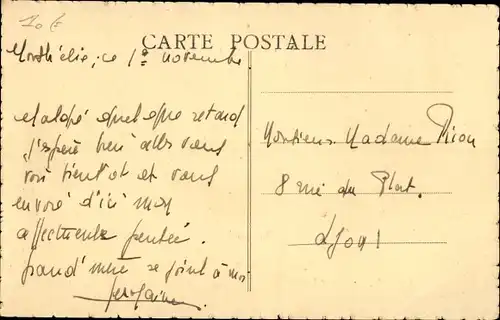 10 €
CARTE POSTALE
Monthélie, ce 1er novembre
Malgré quelque retard
j'espère bien aller vous
voir bientôt et vous
envoie d'ici mon
affectueuse pensée.
grand'mère se joint à moi
Monsieur Madame
8 rue du Plat.
Lyon